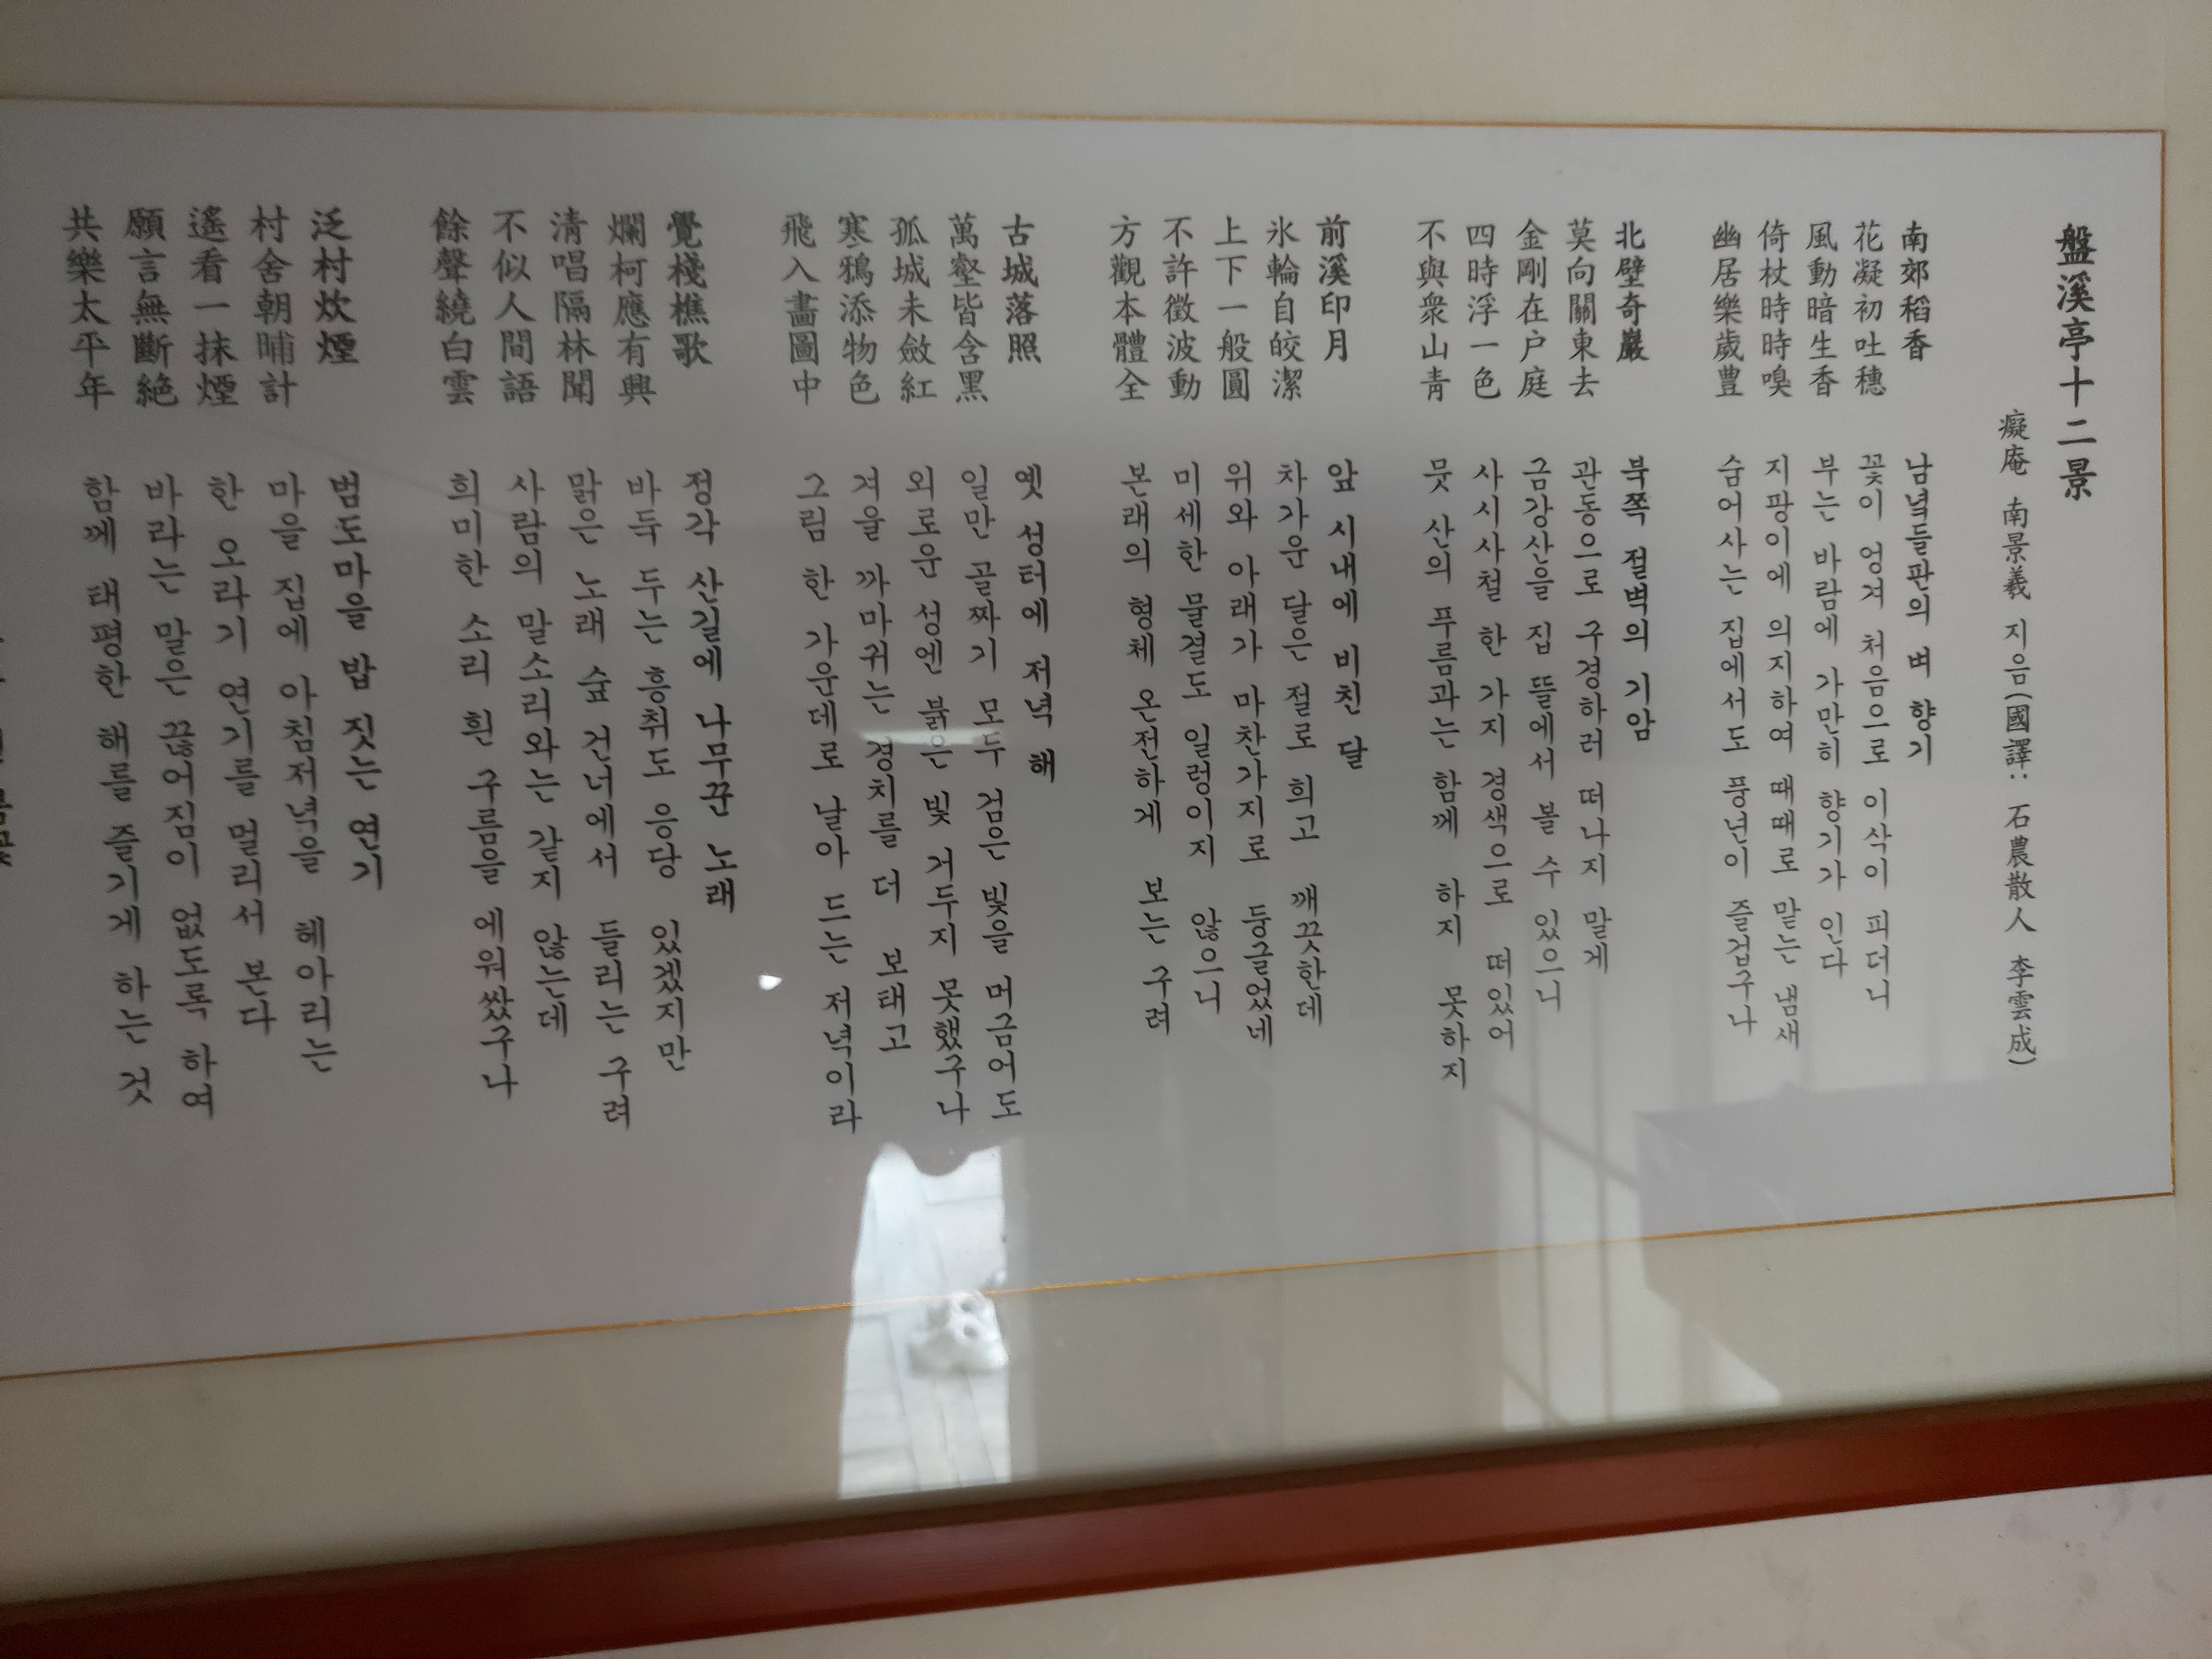 盤溪亭十二景
癡庵 南景羲 지음(國譯: 石農散人 李雲成)
南郊稻香 남녘들판의 벼 향기
花凝初吐穗 꽃이 엉겨 처음으로 이삭이 피더니
風動暗生香 부는 바람에 가만히 향기가 인다
倚杖時時嗅 지팡이에 의지하여 때때로 맡는 냄새
幽居樂歲豊 숨어사는 집에서도 풍년이 즐겁구나
北壁奇巖 북쪽 절벽의 기암
莫向關東去 관동으로 구경하러 떠나지 말게
金剛在户庭 금강산을 집 뜰에서 볼 수 있으니
四時浮一色 사시사철 한 가지 경색으로 떠있어
不與衆山靑 뭇 산의 푸름과는 함께 하지 못하지
前溪印月 앞 시내에 비친 달
氷輪自皎潔 차가운 달은 절로 희고 깨끗한데
上下一般圓 위와 아래가 마찬가지로 둥글었네
不許微波動 미세한 물결도 일렁이지 않으니
方觀本體全 본래의 형체 온전하게 보는구려
古城落照 옛 성터에 저녁 해
萬壑皆含黑 일만 골짜기 모두 검은 빛을 머금어도
孤城未斂紅 외로운 성엔 붉은 빛 거두지 못했구나
寒鴉添物色 겨울 까마귀는 경치를 더 보태고
飛入畵圖中 그림 한 가운데로 날아 드는 저녁이라
覺棧樵歌 정각 산길에 나무꾼 노래
爛柯應有興 바둑 두는 흥취도 응당 있겠지만
清唱隔林聞 맑은 노래 숲 건너에서 들리는구려
不似人間語 사람의 말소리와는 같지 않는데
餘聲繞白雲 희미한 소리 흰 구름을 에워쌌구나
泛村炊煙 범도마을 밥 짓는 연기
村舍朝晡計 마을 집에 아침저녁을 헤아리는
遙看一抹煙 한 오라기 연기를 멀리서 본다
願言無斷絶 바라는 말은 끊어짐이 없도록 하여
共樂太平年 함께 태평한 해를 즐기게 하는 것